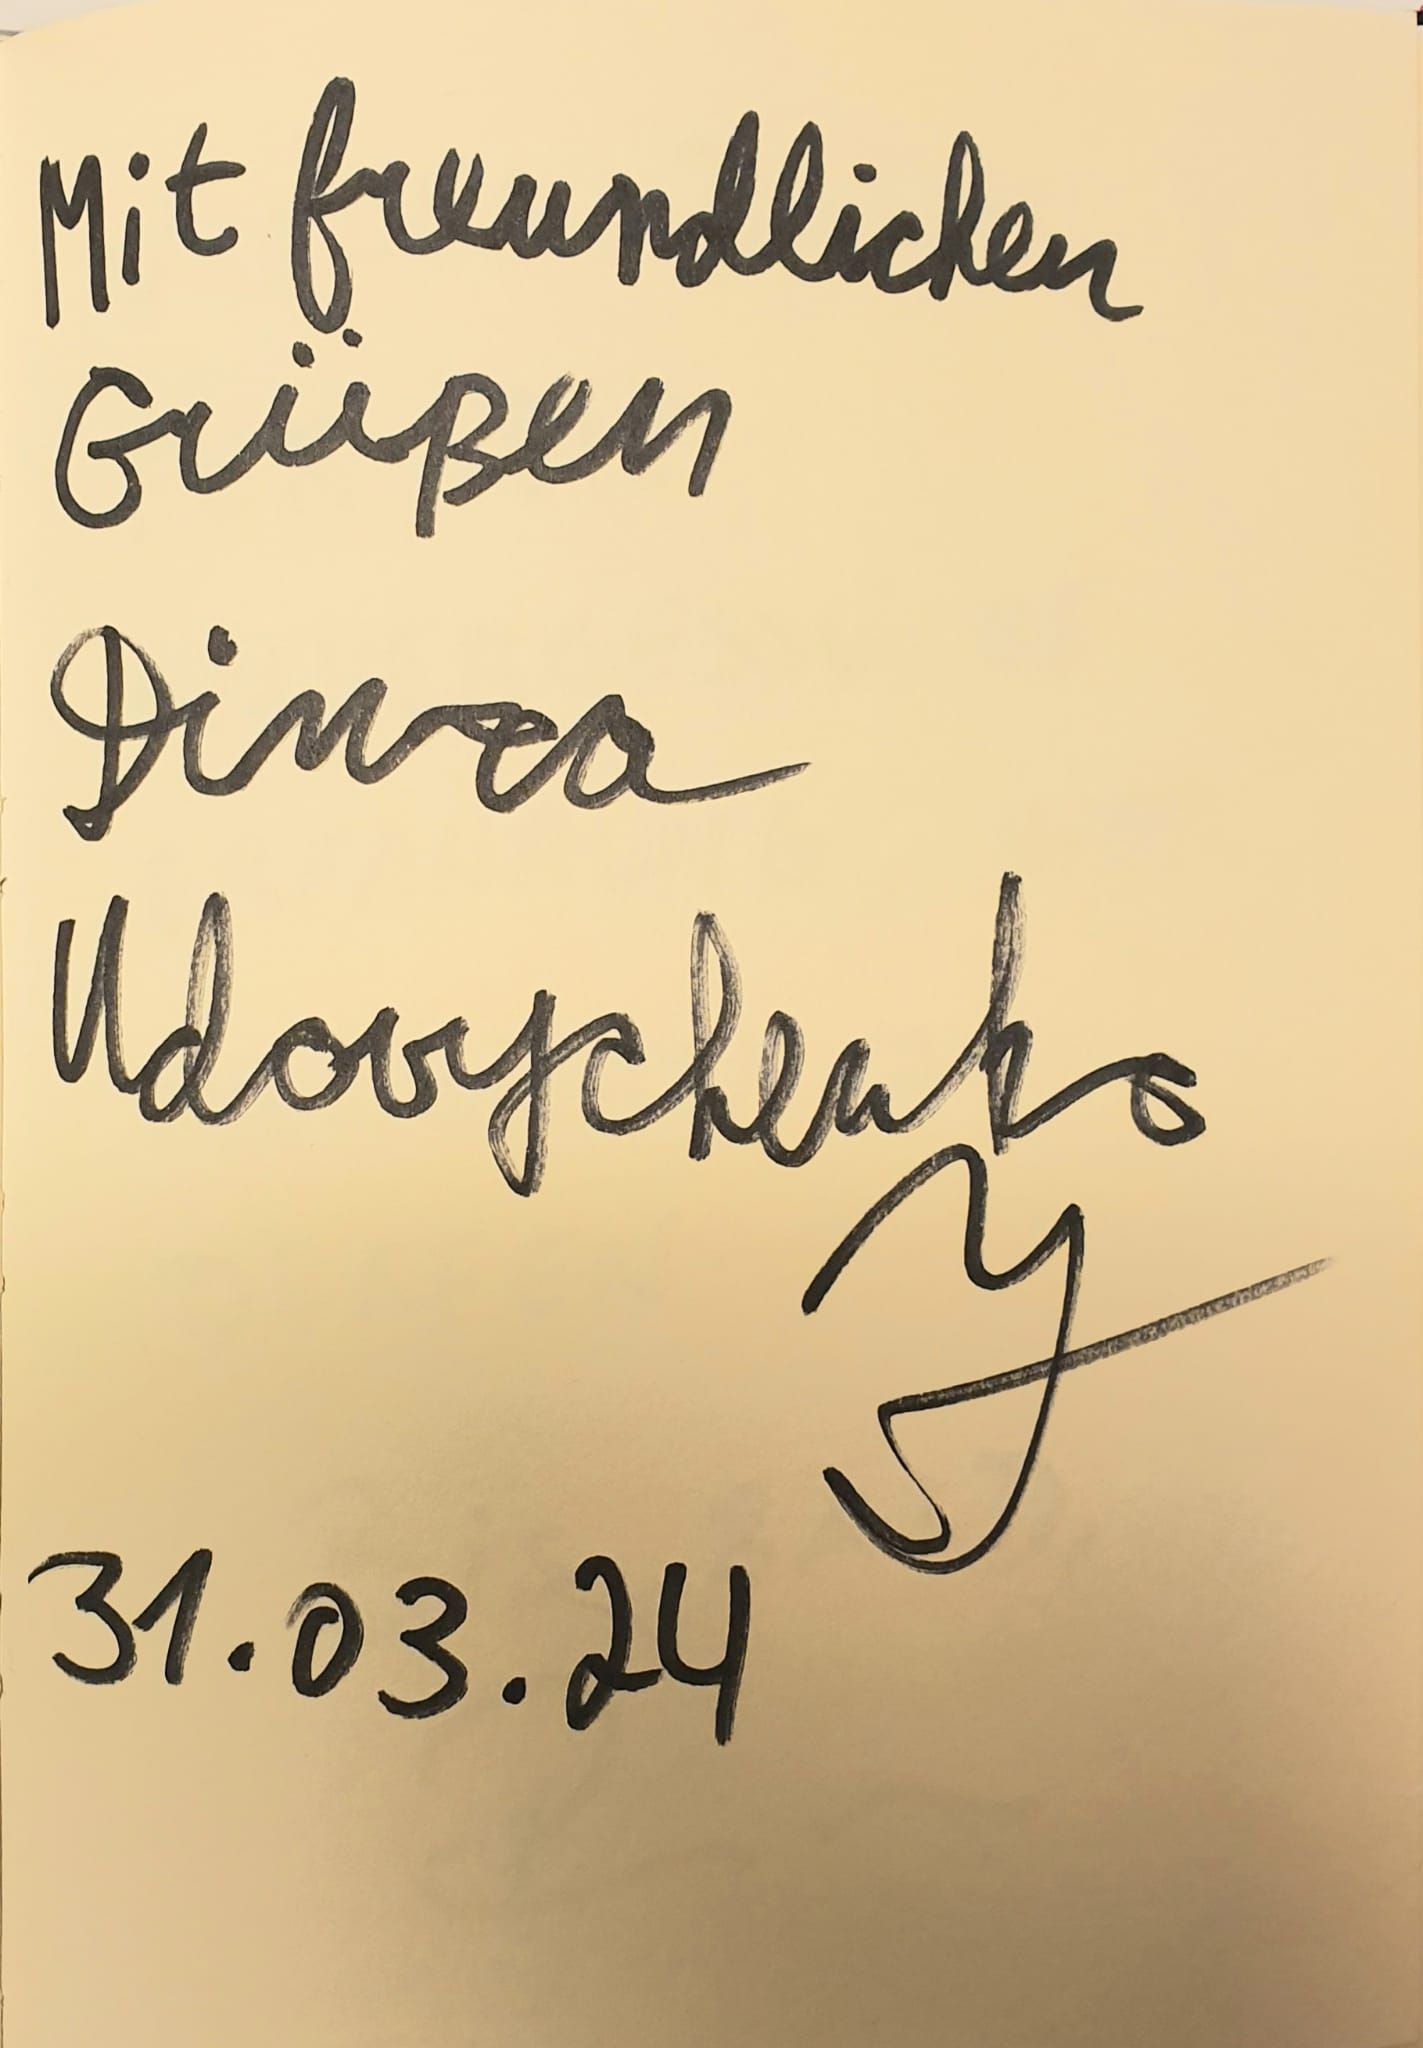 Mit freundlichen
Grüßen
Udovychenko
31.03.24